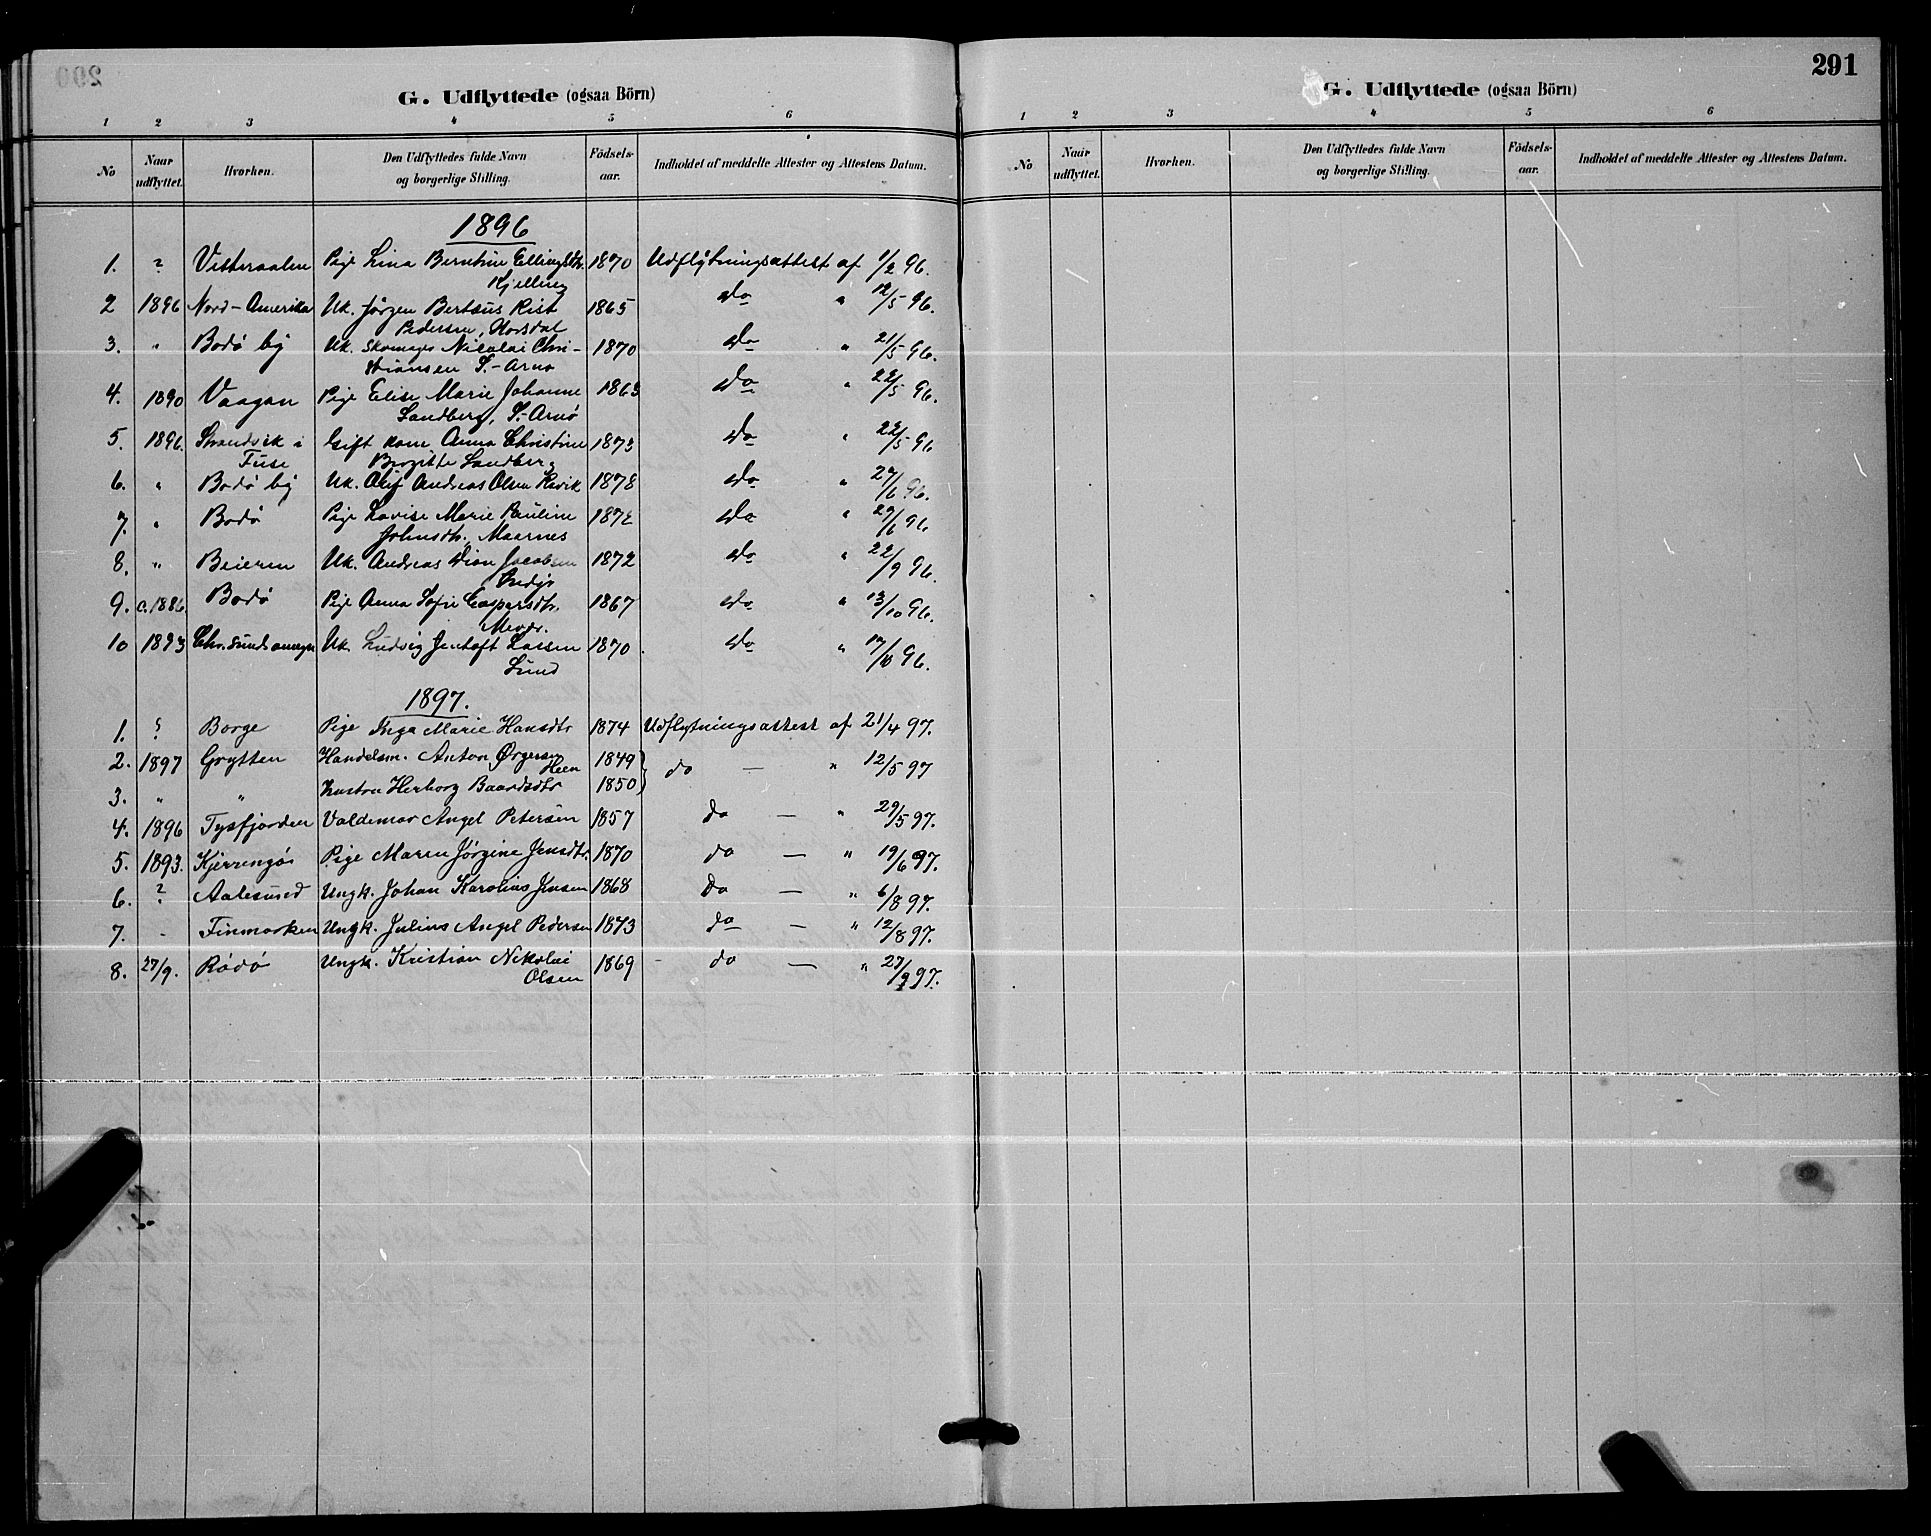 G. Udflyttede (ogsaa Börn)
1 2 3 4 5 6
No Naar udflyttet. Hvorhen. Den Udflyttedes fulde Navn og borgerlige Stilling. Födsels-aar. Indholdet af meddelte Attester og Attestens Datum.
1896
1. ? Vesteraalen Pige Lina Berntine Ellingsdtr. 1870 Udflytningsattest af 1/2 96.
Kjelling
2 1896 Nord-Amerika Uk. Jörgen Bertæus Rist 1865 do " 12/5 96.
Pedersen, Horsdal
3. " Bodö by Uk. Skomager Nicolai Chri- 1870 do " 21/5 96.
stiansen S.-Arnö
4. 1890 Vaagan Pige Elise Marie Johanne 1863 do " 22/5 96.
Sandberg, S.-Arnö
5. 1896. Strandvik i Gift Kone Anna Christine 1873 do " 22/5 96
Fuse Birgitte Sandberg
6. " Bodö by Uk. Andreas Olsen 1878 do " 27/6 96.
7. " Bodö Pige Lovise Marie Pauline 1872 do " 29/6 96
Johnsdtr. Maarnes
8. " Beieren Uk. Andreas Dion Jacobsen 1872 do " 22/9 96.
9. c. 1886. Bodö Pige Anna Sofie Caspersdtr. 1867 do " 13/10 96.
10 1893 Chr.sunds omegn Uk. Ludvig Jentoft Lassen 1870. do " 17/10 96.
Lund
1897.
1. ? Borge Pige Inga Marie Hansdtr 1874 Udflytningsattest af 21/4 97.
2. 1897 Grytten Handelsm. Anton Örgersen 1849 } do — " 12/5 97
Heen
3. " " Kustru Herborg Baardsdtr 1850
4. 1896 Tysfjorden Valdemar Angel Petersen 1857 do — " 29/5 97.
5. 1893. Kjerringös Pige Maren Jörgine Jensdtr. 1870 do — " 19/6 97.
6. ? Aalesund Ungk. Johan Karolius Jensen 1868 do — " 6/8 97.
7. - Finmarken Ungk. Julius Angel Pedersen 1873 do — " 12/8 97.
8. 27/9. Rödö Ungk. Kristian Nikolai 1869 - do — " 27/9 97.
Olsen
291
G. Udflyttede (ogsaa Börn)
1 2 3 4 5 6
No Naar udflyttet. Hvorhen. Den Udflyttedes fulde Navn og borgerlige Stilling. Födsels-aar. Indholdet af meddelte Attester og Attestens Datum.